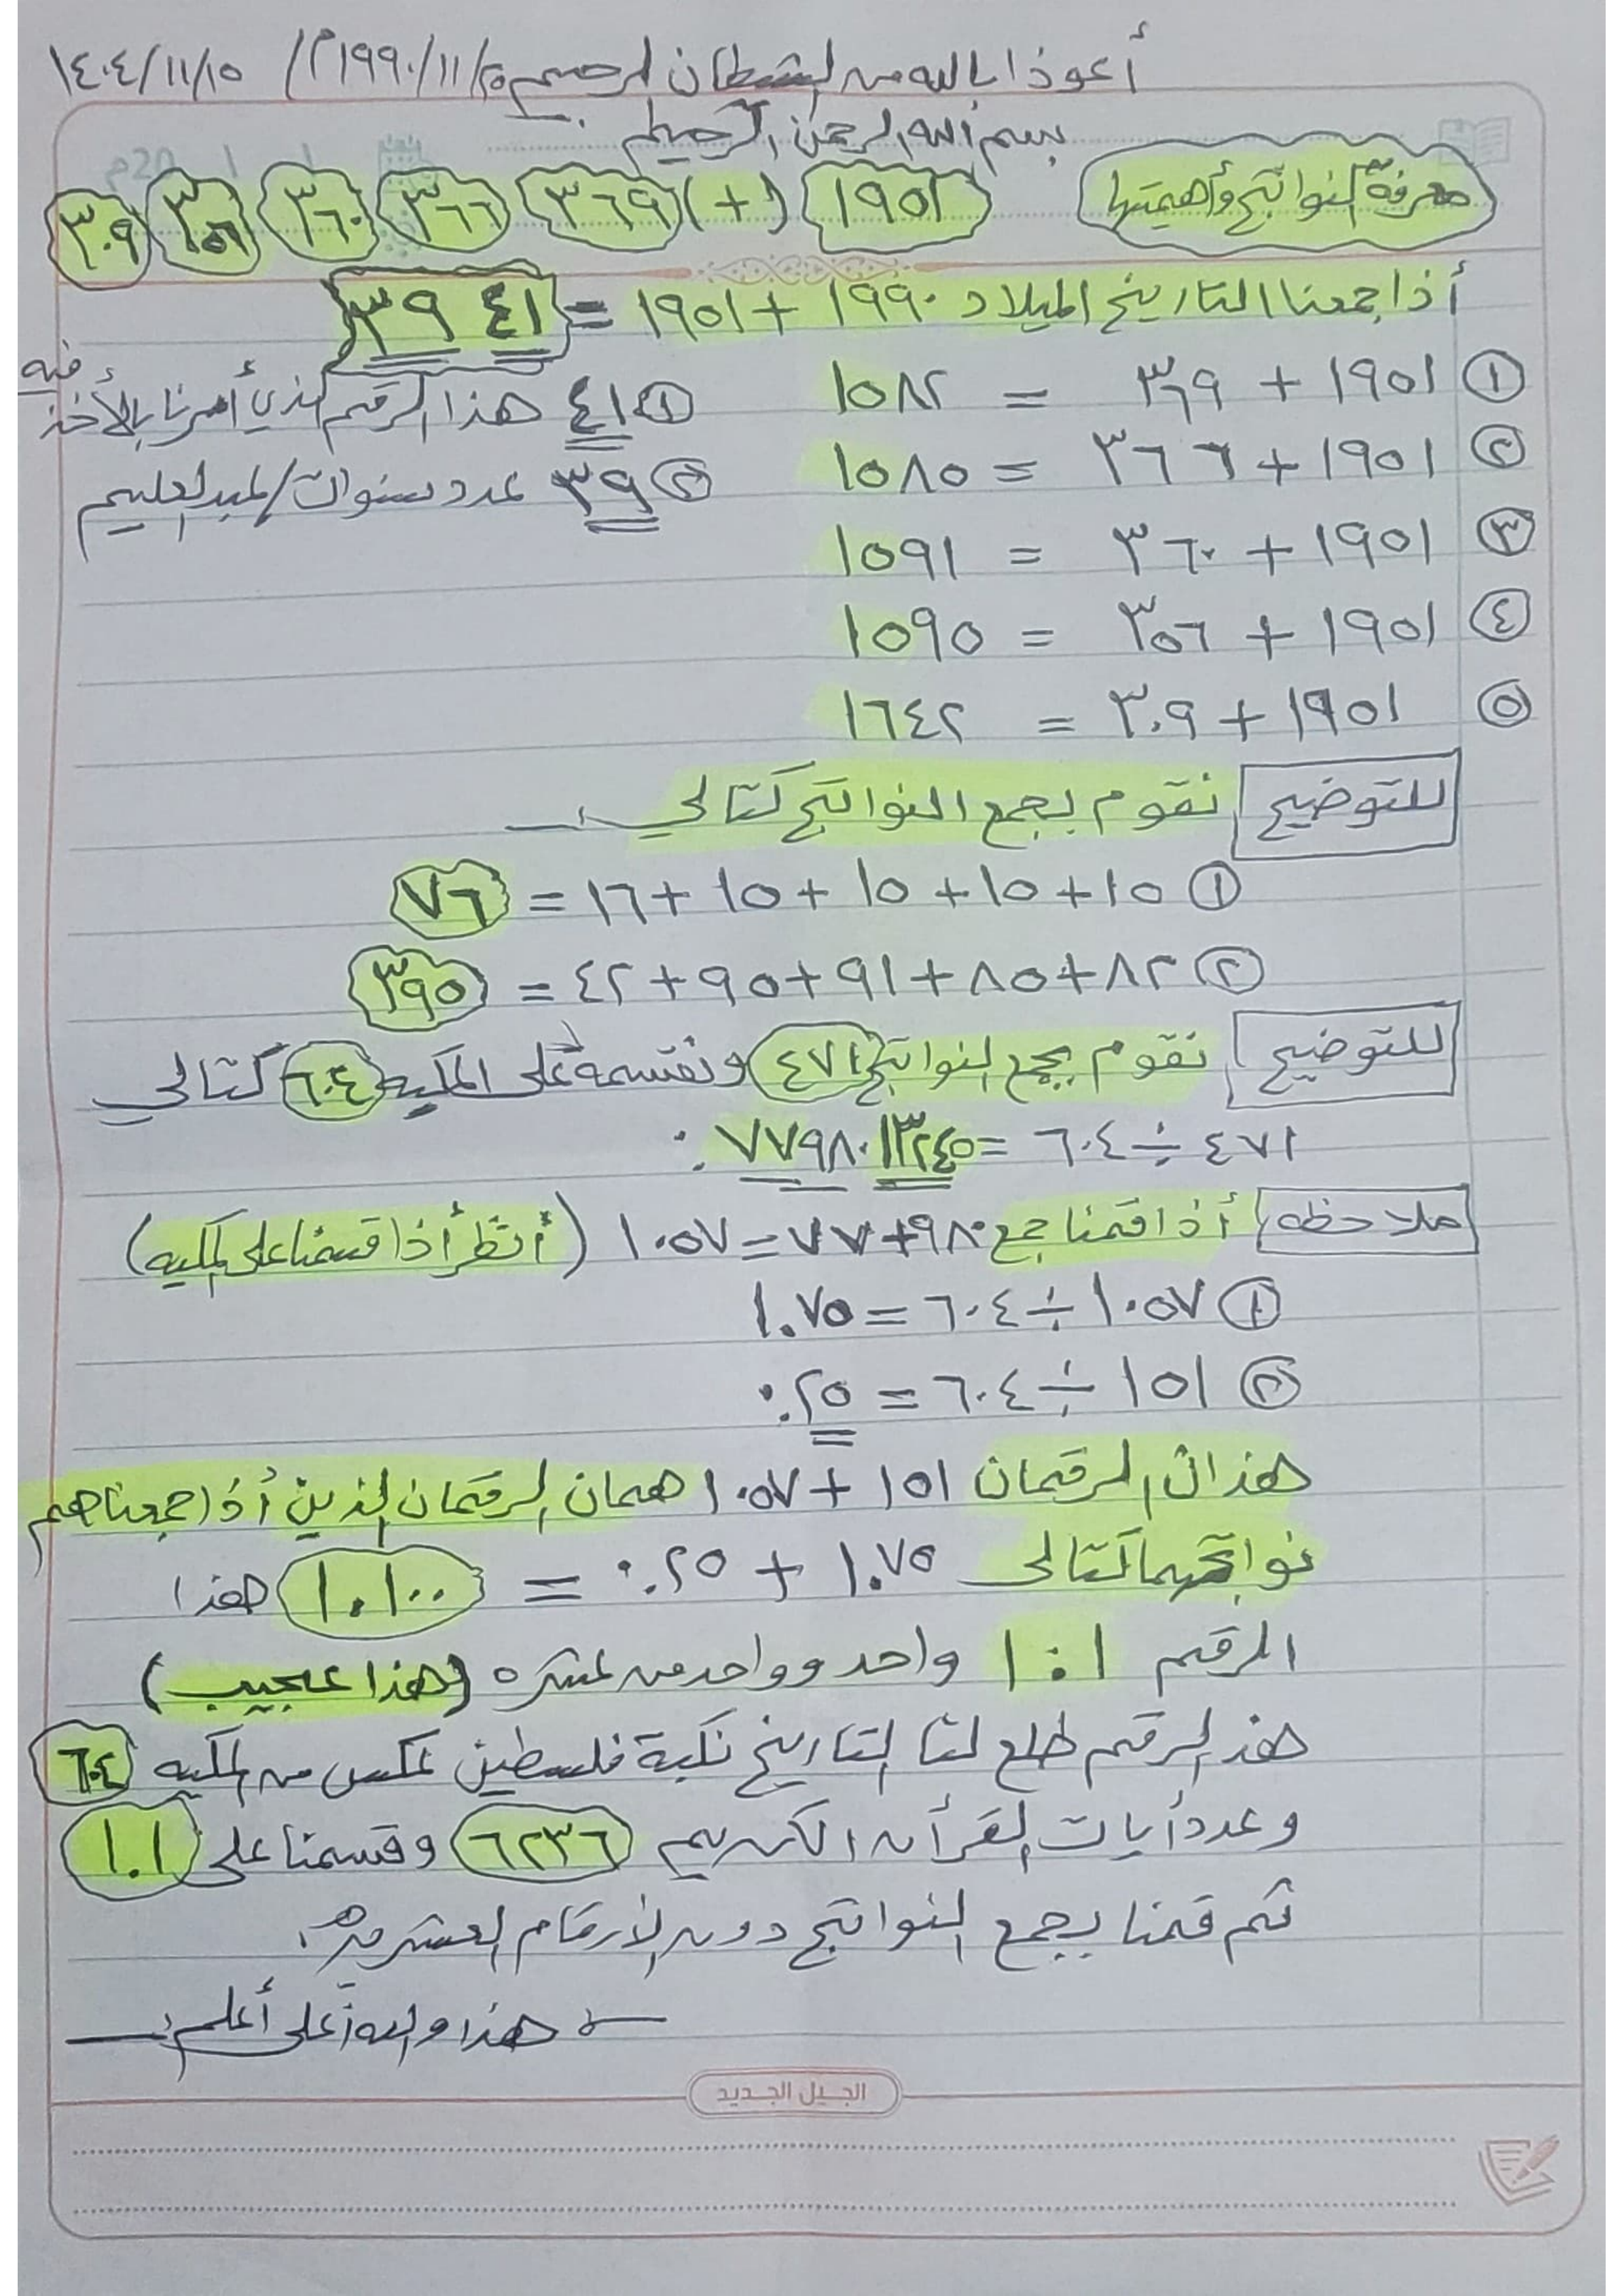 أعوذ بالله من الشيطان الرجيم ١٩٩٠/١١/٢٥م / ١٤٠٤/١١/١٥
بسم الله الرحمن الرحيم
20م
معرفة النواتج وأهميتها ١٩٥١ (+) ٣٦٩ ٣٦٦ ٣٦٠ ٣٥٦ ٣٠٩
أذا جمعنا التاريخ الميلاد ١٩٩٠ + ١٩٥١ = ٤١ ٣٩
① ١٩٥١ + ٣٦٩ = ١٥٨٢
① ٤١ هذا الرقم الذي أمرنا بالأخذ فيه
② ١٩٥١ + ٣٦٦ = ١٥٨٥
② ٣٩ عدد سنوات / عبدالعليم
③ ١٩٥١ + ٣٦٠ = ١٥٩١
④ ١٩٥١ + ٣٥٦ = ١٥٩٥
⑤ ١٩٥١ + ٣٠٩ = ١٦٤٢
للتوضيح نقوم بجمع النواتج كتالي :ـ
① ١٥ + ١٥ + ١٥ + ١٥ + ١٦ = ٧٦
② ٨٢ + ٨٥ + ٩١ + ٩٥ + ٤٢ = ٣٩٥
للتوضيح نقوم بجمع النواتج ٤٧١ ونقسمة على المكيه ٦٠٤ كتالي
٤٧١ ÷ ٦٠٤ = ٧٧٩٨٠١٣٢٤٥ .
ملاحظه أذا قمنا جمع ٩٨٠ + ٧٧ = ١٠٥٧ (أنظر أذا قسمنا على المكيه)
① ١٠٥٧ ÷ ٦٠٤ = ١.٧٥
② ١٥١ ÷ ٦٠٤ = ٢٥.
هذان الرقمان ١٥١ + ١٠٥٧ همان الرقمان الذين أذا جمعناهم
نواتجهما كتالي ١.٧٥ + ٢٥. = ١.١٠٠ هذا
الرقم ١.١ واحد وواحد من عشره (هذا عجيب)
هذ الرقم طلع لنا التاريخ نكبة فلسطين عكس من المكيه ٦٠٤
وعدد أيات القرأن الكريم ٦٢٣٦ وقسمنا على ١.١
ثم قمنا بجمع النواتج دون الأرقام العشريه.
هذا والله أعلى أعلم :ـ
الجيل الجديد